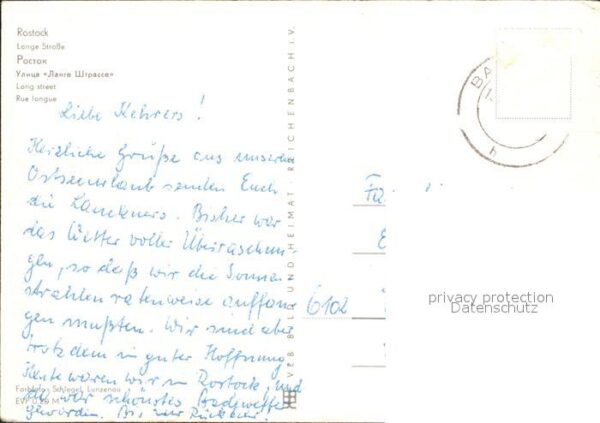 Rostock
Lange Straße
Росток
Улица «Ланге Штрассе»
Long street
Rue longue
Liebe Kehrers!
Herzliche Grüße aus unserem
Ostseeurlaub senden Euch
die Lanckners. Bisher war
das Wetter voller Überraschun-
gen, so daß wir die Sonnen
strahlen ratenweise auffan-
gen mußten. Wir sind aber
trotzdem in guter Hoffnung.
Heute waren wir in Rostock, und
es war schönstes Badewetter
geworden. Bis zur Rückkehr!
Farbfoto: Schlegel, Lunzenau
EVP 0,20 M
VEB BILD UND HEIMAT REICHENBACH i.V.
Fa
6102
BA
privacy protection
Datenschutz